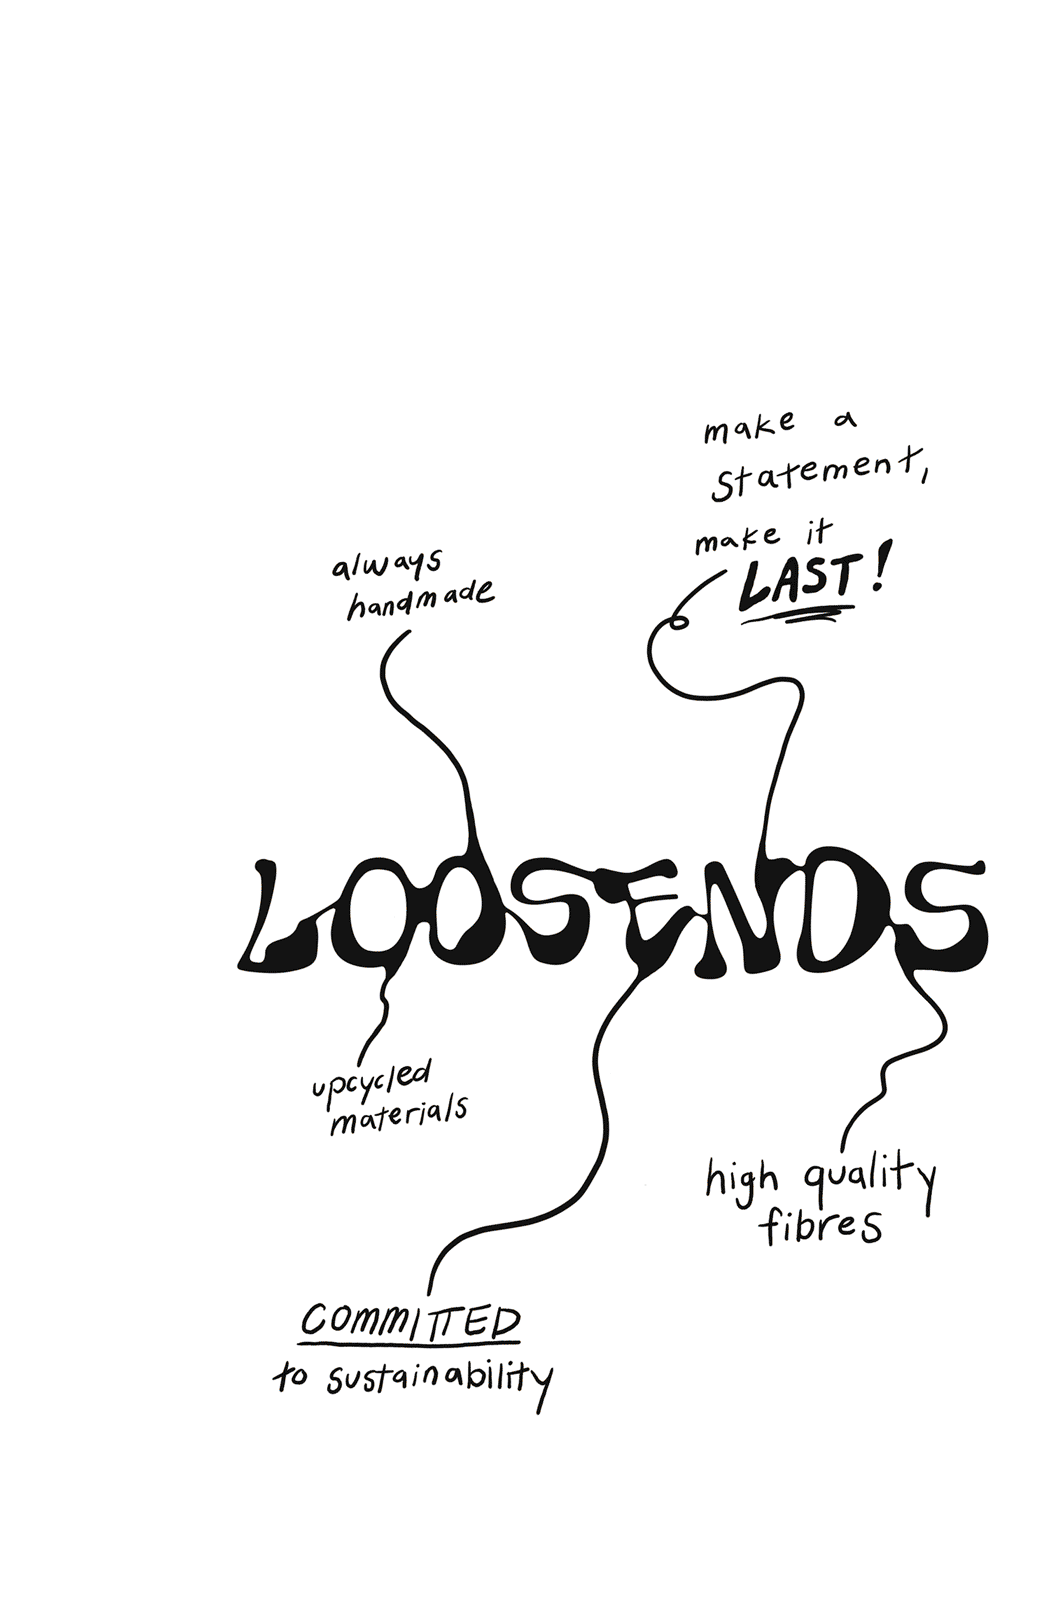 make a
statement,
make it
LAST!
always
handmade
LOOSENDS
upcycled
materials
high quality
fibres
COMMITTED
to sustainability